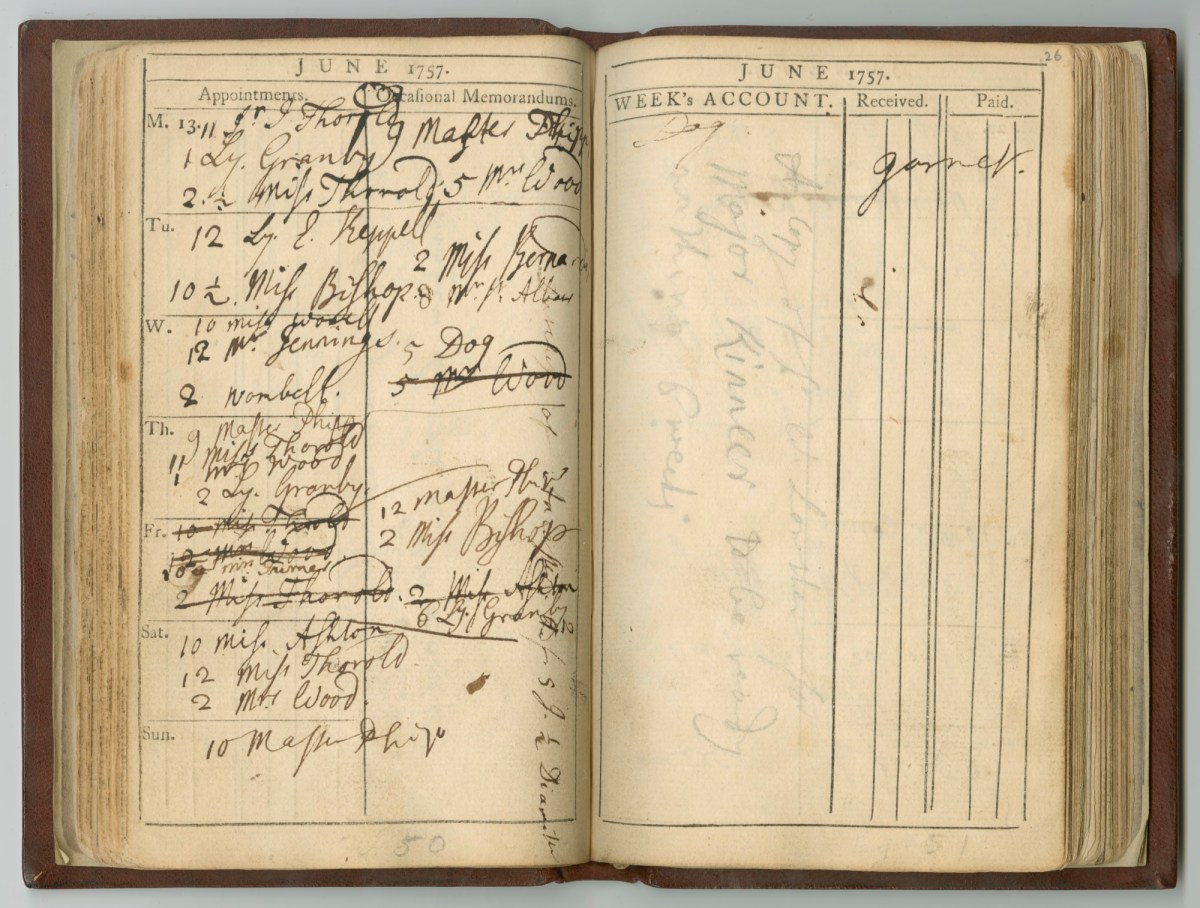 JUNE 1757.
Appointments. Occasional Memorandums.
M. 13. 11 Sr J Thorold 9 Master Phipps
1 Ly. Granby
2 ½ Miss Thorold. 5 Mrs Wood
Tu. 12 Ly. E. Keppell
2 Miss
10 ½ Miss Bishop. 8 Mr St Albans
W. 10 miss
12 Mr Jennings. 5 Dog
2 Wombell. 5 Mrs Wood
Th. 9 Master Phipps
11 Miss Thorold
1 Mrs Wood
2 Ly. Granby.
Fr. 10 Miss Thorold 12 Master Phipps
12 Mrs Wood 2 Miss Bishop
Mrs Turner
2 Miss Thorold. 2 Miss Ashton
6 Ly. Granby
Sat. 10 Miss Ashton
12 Miss Thorold
2 Mrs Wood.
Sun. 10 Master Phips
of
5 J. ½ Diameter
50
26
JUNE 1757.
WEEK's ACCOUNT. Received. Paid.
Dog
garnet.
Major Kinneer to be ready
51